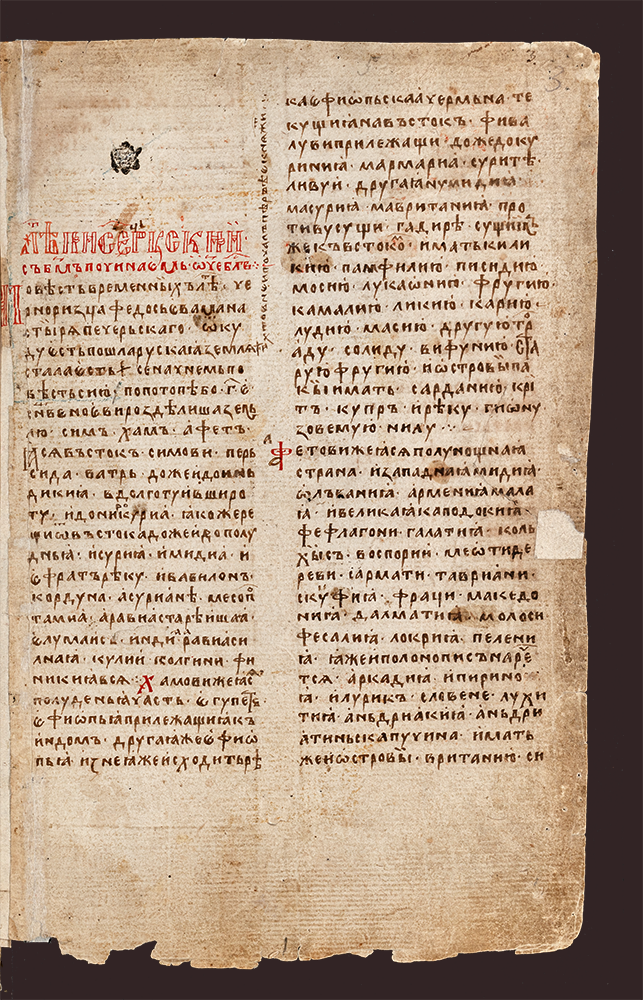 съ бг҃мъ починаемъ · ѿч҃е блг҃в ·:·
Повѣсть временныхъ лѣт · че
норизца федосьева мана
стыря печерьскаго · ѿку
ду есть пошла рускаꙗ землѧ
стала есть · се начнемь по
вѣсть сию · по потопѣ бо · г҃ · е
сн҃ве ноеви роздѣлиша зем
лю · симъ · хамъ · афетъ ·
ꙗсѧ въстокъ · симови · перь
сида · ватрь · доже и до инь
дикиꙗ · в долготу и в широ
ту · и до нирокуриꙗ · ꙗкоже ре
щи ѿ въстока доже и до полу
дньꙗ · и суриꙗ · и мидиꙗ · и
ефратъ рѣку · и вавилонъ ·
кордуна · асурѧне · месопо
тамиа · аравиа старѣишаꙗ ·
елумаисъ · инди · равиа си
лнаꙗ · кулии · колгини · фи
никиꙗ всѧ · Хамови же ꙗсѧ
полуденьꙗ часть · егупет
ефиопьꙗ прилежащиꙗ къ
индомъ · другаꙗ же ефио
пьꙗ · из неꙗже исходить рѣ
ка ефиопьскаꙗ чермьна · те
кущиꙗ на въстокъ · фива
луви прилежащи · доже до ку
риниꙗ · мармариа · сурите ·
ливуи · другаꙗ нумидиꙗ ·
масуриꙗ · мавританиꙗ · про
тиву сущи гадирѣ · сущимъ
же къ встокомъ · имать кили
кию · памфилию · писидию
мосию · лукаонию · фругию ·
камалию · ликию · карию ·
лудию · масию · другую тро
аду · солиду · вифунию · ста
рую фругию · и островы па
кы имать · сарданию · кри
тъ · купръ · и рѣку · гиону
зовемую · нилу ·:·
Афетови же ꙗсѧ полунощнаꙗ
страна · и западнаꙗ мидиꙗ ·
олъваниꙗ · армениꙗ мала
ꙗ · и великаꙗ каподокиꙗ ·
фефлагони · галатиꙗ · коль
хысъ · воспории · меоти де
реви · сармати · тавриани ·
скуфиꙗ · фраци · македо
ниꙗ · далматиꙗ · молоси
фесалиꙗ · локриꙗ · пелени
ꙗ · ꙗже и полопонисъ наре
тсѧ · аркадиꙗ · и пирино
ꙗ · илурикъ · словене · лухи
тиꙗ · аньдриакиꙗ · аньдри
атиньска пучина · имать
же и островы · вританию · си